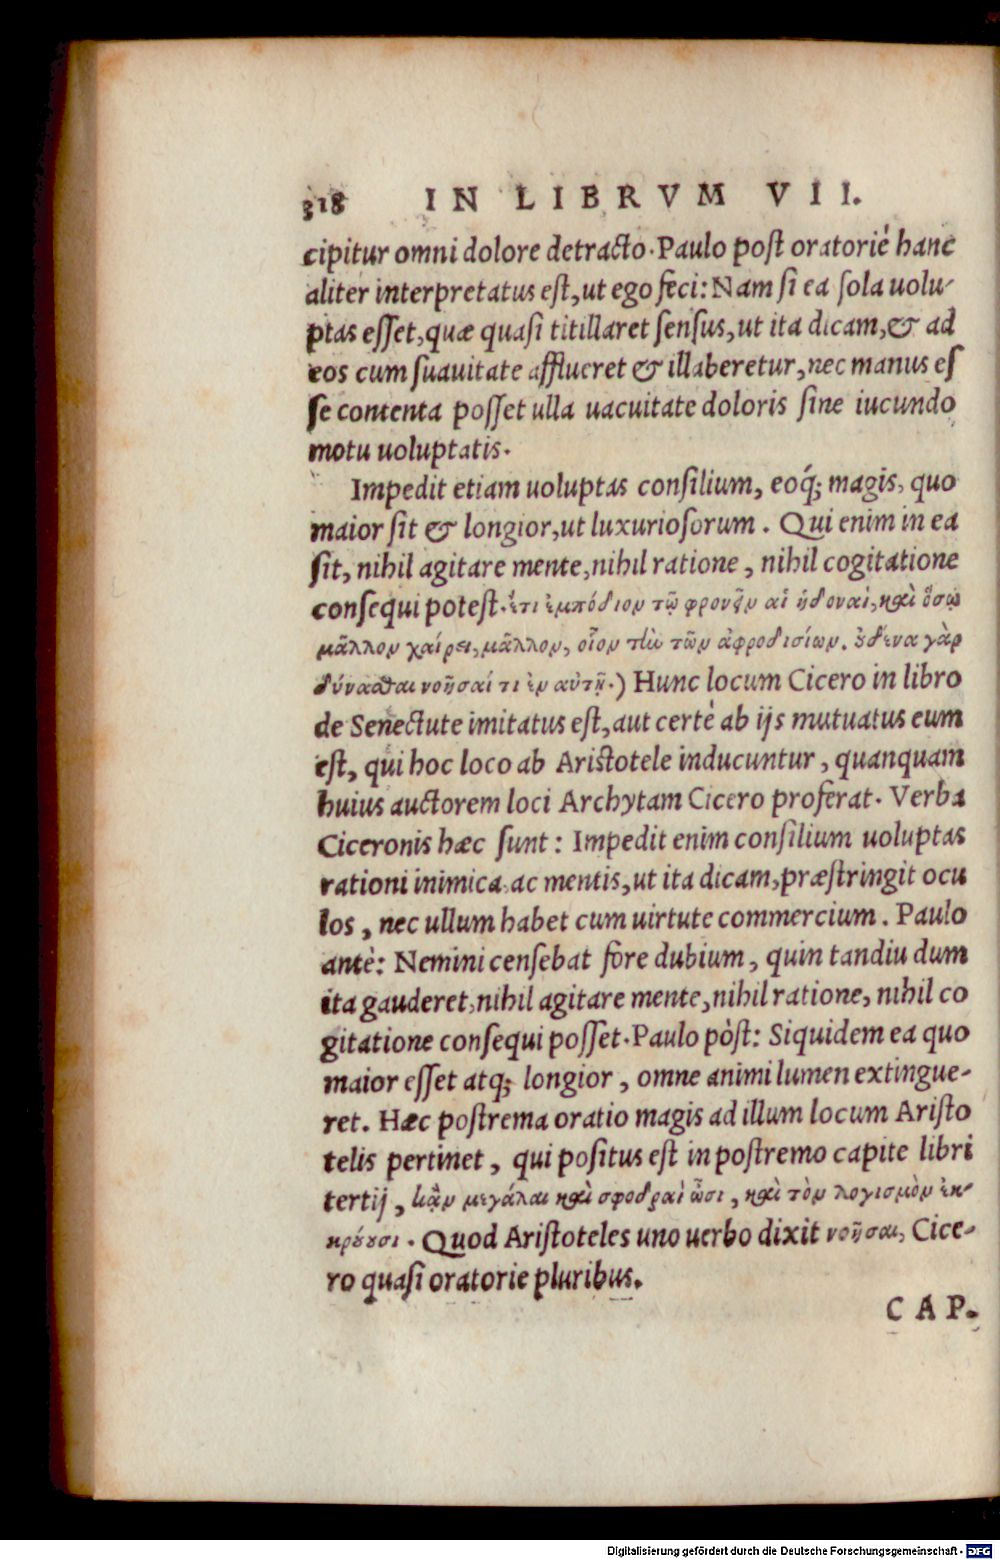 318 IN LIBRVM VII.
cipitur omni dolore detracto. Paulo post oratoriè hanc
aliter interpretatus est, ut ego feci: Nam si ea sola uolu-
ptas esset, quæ quasi titillaret sensus, ut ita dicam, & ad
eos cum suauitate afflueret & illaberetur, nec manus es
se contenta posset ulla uacuitate doloris sine iucundo
motu uoluptatis.
Impedit etiam uoluptas consilium, eoq́; magis, quo
maior sit & longior, ut luxuriosorum. Qui enim in ea
sit, nihil agitare mente, nihil ratione, nihil cogitatione
consequi potest. ἔτι ἐμπόδιον τῷ φρονεῖν αἱ ἡδοναὶ, καὶ ὅσῳ
μᾶλλον χαίρει, μᾶλλον, οἷον τὴν τῶν ἀφροδισίων. οὐδένα γὰρ
δύνασθαι νοῆσαί τι ἐν αὐτῇ.) Hunc locum Cicero in libro
de Senectute imitatus est, aut certè ab ijs mutuatus eum
est, qui hoc loco ab Aristotele inducuntur, quanquam
huius auctorem loci Archytam Cicero proferat. Verba
Ciceronis hæc sunt: Impedit enim consilium uoluptas
rationi inimica, ac mentis, ut ita dicam, præstringit ocu
los, nec ullum habet cum uirtute commercium. Paulo
antè: Nemini censebat fore dubium, quin tandiu dum
ita gauderet, nihil agitare mente, nihil ratione, nihil co
gitatione consequi posset. Paulo pòst: Siquidem ea quo
maior esset atq; longior, omne animi lumen extingue-
ret. Hæc postrema oratio magis ad illum locum Aristo
telis pertinet, qui positus est in postremo capite libri
tertij, κἂν μεγάλαι καὶ σφοδραὶ ὦσι, καὶ τὸν λογισμὸν ἐκ-
κρούουσι. Quod Aristoteles uno uerbo dixit νοῆσαι, Cice-
ro quasi oratorie pluribus.
CAP.
Digitalisierung gefördert durch die Deutsche Forschungsgemeinschaft - DFG